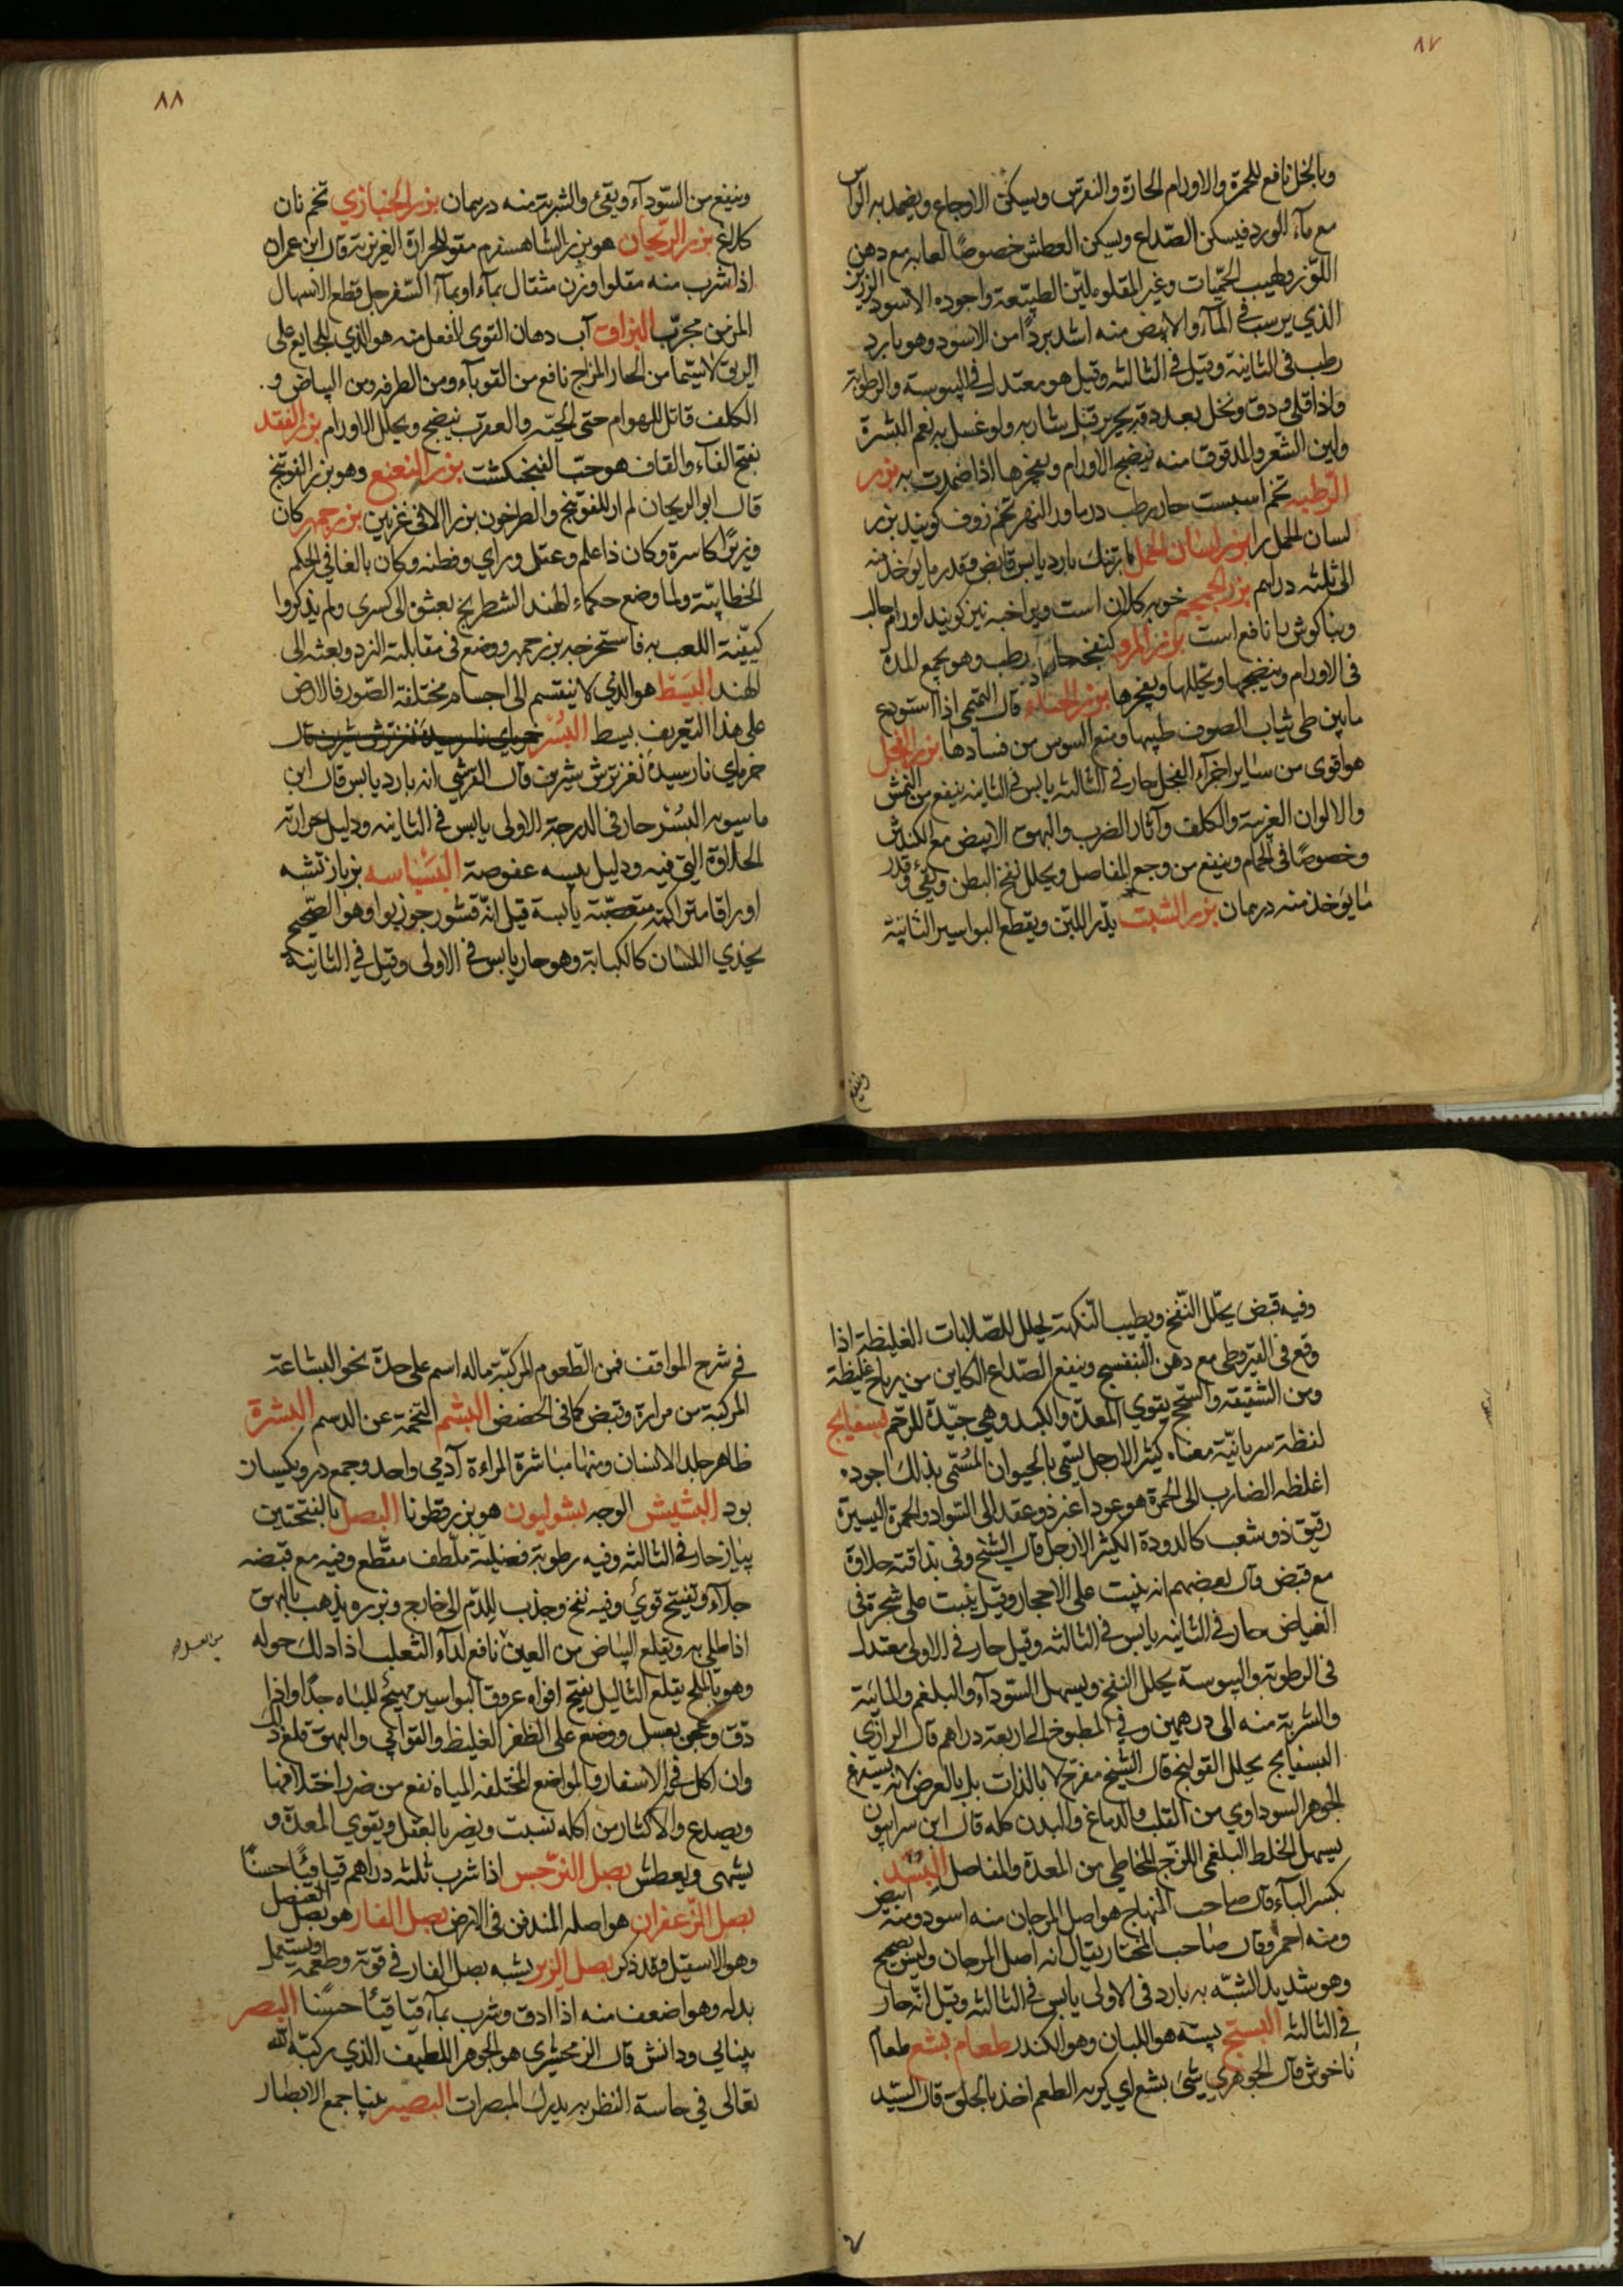 ٨٧
وبالخل نافع للحمرة والاورام الحارة والنقرس ويسكن الاوجاع ويضمد به الراس
مع ماء الورد فيسكن الصداع ويسكن العطش خصوصا لعابه مع دهن
اللوز ولهيب الحميات وغير المقلو يلين الطبيعة واجوده الاسود الرزين
الذي يرسب في الماء والابيض منه اشد بردا من الاسود وهو بارد
رطب في الثانية وقيل في الثالثه وقيل هو معتدل في اليبوسة والرطوبة
واذا قلي ودق ونخل بعد دقه بحرير قتل شاربه ولو غسل به نعم البشرة
ولين الشعر والمدقوق منه ينضج الاورام ويفجرها اذا ضمدت به بزر
الرطبه تخم اسبست حار رطب در ماورالنهر تخم زوف كويند بزر
لسان الحمل را بزر لسان الحمل بارتنك بارد يابس قابض وقدر ما يؤخذ منه
الى ثلثه دراهم بزر الخمخم خوبه كلان است ويرا خبه نيز كويند اورام
وبناكوش را نافع است بزر المرو حار رطب وهو يجمع المدة
في الاورام وينضجها ويحللها ويفجرها بزر الحناء قال التميمي اذا استودع
مابين طي ثياب الصوف طيبها ومنع السوس من فسادها بزر الفجل
هو اقوى من ساير اجزآء الفجل حار في الثالثه يابس في الثانيه ينفع من النمش
والالوان الغريبة والكلف وآثار الضرب والبهق الابيض مع الكندش
وخصوصا في الحمام وينفع من وجع المفاصل ويحلل نفخ البطن ويقيء وقدر
ما يؤخذ منه درهمان بزر الشبت يدر اللبن ويقطع البواسير الثانية
وينفع
٨٨
وينفع من السودآء ويقيء والشربة منه درهمان بزر الخبازي تخم نان
كلاغ بزر الريحان هو بزر الشاهسفرم مقو للحرارة الغريزية قال ابن عمران
اذا شرب منه مقلوا وزن مثقال بماء او بمآء السفرجل قطع الاسهال
المزمن مجرب البزاق آب دهان القوى الفعل منه هو الذي للجايع على
الريق لاسيما من الحار المزاج نافع من القوبآء ومن الطرفه ومن البياض و
الكلف قاتل للهوام حتى الحيه والعقرب ينضج ويحلل الاورام بزر الفقد
بفتح الفآء والقاف هو حب الفنجنكشت بزر النعنع وهو بزر الفوتنج
قال ابو الريحان لم ار للفوتنج والطرخون بزرا الا في غزنين بزرجمهر كان
وزير اكاسرة وكان ذا علم وعقل وراي وفطنه وكان بالغا في الحكم
الخطابية ولما وضع حكماء الهند الشطرنج بعثوا الى كسرى ولم يذكروا
كيفية اللعب به فاستخرجه بزرجمهر ووضع في مقابلته النرد وبعثه الى
الهند البسيط هو الذي لا ينقسم الى اجسام مختلفة الصور فالارض
على هذا التعريف بسيط البسر
خرماي نارسيدة نغز ترش شيرين قال القرشي انه بارد يابس قال ابن
ماسويه البسر حار في الدرجة الاولى يابس في الثانيه ودليل حرارته
الحلاوة التي فيه ودليل يبسه عفوصة البسباسه بزباز تشبه
اوراقا متراكمة متعصبة يابسة قيل انه قشور جوزبوا وهو الصحيح
يحذي اللسان كالكبابة وهو حار يابس في الاولى وقيل في الثانية
وفيه قبض يحلل النفخ ويطيب النكهة يحلل الصلابات الغليظة اذا
وقع في القيروطي مع دهن البنفسج وينفع الصداع الكاين من رياح غليظة
ومن الشقيقه والسحج يقوي المعدة والكبد وهي جيدة للرحم بسفايج
لفظة سريانية معناه كثير الارجل يسمى بالحيوان المسمى بذلك اجوده
اغلظه الضارب الى الحمرة هو عود اغبر ذو عقد الى السواد والحمرة اليسيرة
رقيق ذو شعب كالدودة الكثير الارجل قال الشيخ وفي مذاقته حلاوة
مع قبض وقال بعضهم انه ينبت على الاحجار وقيل ينبت على شجرة في
الغياض حار في الثانيه يابس في الثالثه وقيل حار في الاولى معتدل
في الرطوبة واليبوسة يحلل النفخ ويسهل السودآء والبلغم والمائية
والشربة منه الى درهمين وفي المطبوخ الى اربعة دراهم قال الرازي
البسفايج يحلل القولنج قال الشيخ مفرح لا بالذات بل بالعرض لانه يستفرغ
الجوهر السوداوي من القلب والدماغ والبدن كله قال ابن سرابيون
يسهل الخلط البلغمي اللزج المخاطي من المعدة والمفاصل البسد
بكسر البآء قال صاحب المنهاج هو اصل المرجان منه اسود ومنه ابيض
ومنه احمر وقال صاحب المختار يقال انه اصل المرجان وليس بصحيح
وهو شديد الشبه به بارد في الاولى يابس في الثالثه وقيل انه حار
في الثالثه البستج بسته هو اللبان وهو الكندر طعام بشع طعام
ناخوش قال الجوهري شئ بشع اي كريه الطعم اخذ بالحلق قال السيد
في شرح المواقف فمن الطعوم المركبة ماله اسم على حدة نحو البشاعة
المركبة من مرارة وقبض كما في الحضض البشم التخمة عن الدسم البشرة
ظاهر جلد الانسان ومنها مباشرة المراءة آدمي واحد وجمع درو يكسان
بود البشيش الوجه بشوليون هو بزر قطونا البصل بالفتحتين
پياز حار في الثالثه وفيه رطوبة فضيلية ملطف مقطع وفيه مع قبضه
جلآء وتفتيح قوي وفيه نفخ وجذب للدم الى خارج وبزره يذهب بالبهق
اذا طلي به ويقلع البياض من العين نافع لدآء الثعلب اذا دلك حوله
وهو بالملح يقلع الثاليل يفتح افواه عروق البواسير مهيج للباه جدا واذا
دق وعجن بعسل ووضع على الظفر الغليظ والقوابي والبهق قلع ذلك
وان اكل في الاسفار والمواضع المختلفه المياه نفع من ضرر اختلافها
ويصدع والاكثار من اكله يسبت ويضر بالعقل ويقوي المعدة و
يشهى ويعطش بصل النرجس اذا شرب ثلثه دراهم قيا قيئا حسنا
بصل الزعفران هو اصله المندفن في الارض بصل الفار هو بصل العنصل
وهو الاسقيل وقد ذكر بصل الزير يشبه بصل الفار في قوته وطعمه ويستعمل
بدله وهو اضعف منه اذا ادق وشرب بمآء قيا قيئا حسنا البصر
بينايي ودانش قال الزمخشري هو الجوهر اللطيف الذي ركبه الله
تعالى في حاسة النظر به يدرك المبصرات البصير بينا جمع الابصار